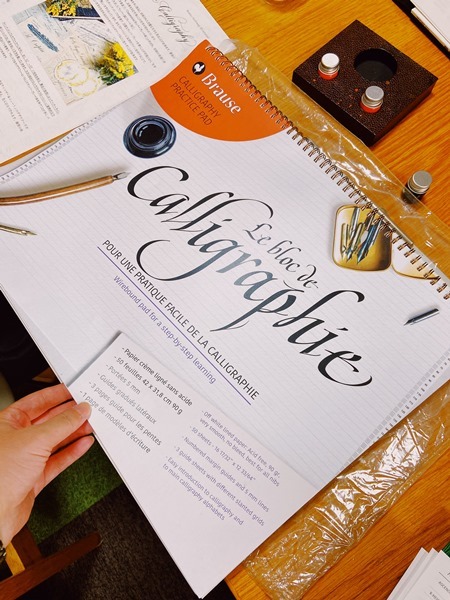 Calligraphy
Brause
CALLIGRAPHY
PRACTICE PAD
Le bloc de
Calligraphie
POUR UNE PRATIQUE FACILE DE LA CALLIGRAPHIE
Wirebound pad for a step-by-step learning
- Papier crème ligné sans acide
- 50 feuilles 42 x 31,8 cm 90 g
- Portées 5 mm
- Guides gradués latéraux
- 3 pages guide pour les pentes
- 1 page de modèles d'écriture
- Off white lined paper: Acid free, 90 gr,
very smooth, no bleed, best for all nibs
- 50 sheets - 16 17/32" x 12 33/64"
- Numbered margin guides and 5 mm lines
- 3 guide sheets with different slanted grids
- Easy introduction to calligraphy and
to main calligraphy alphabets